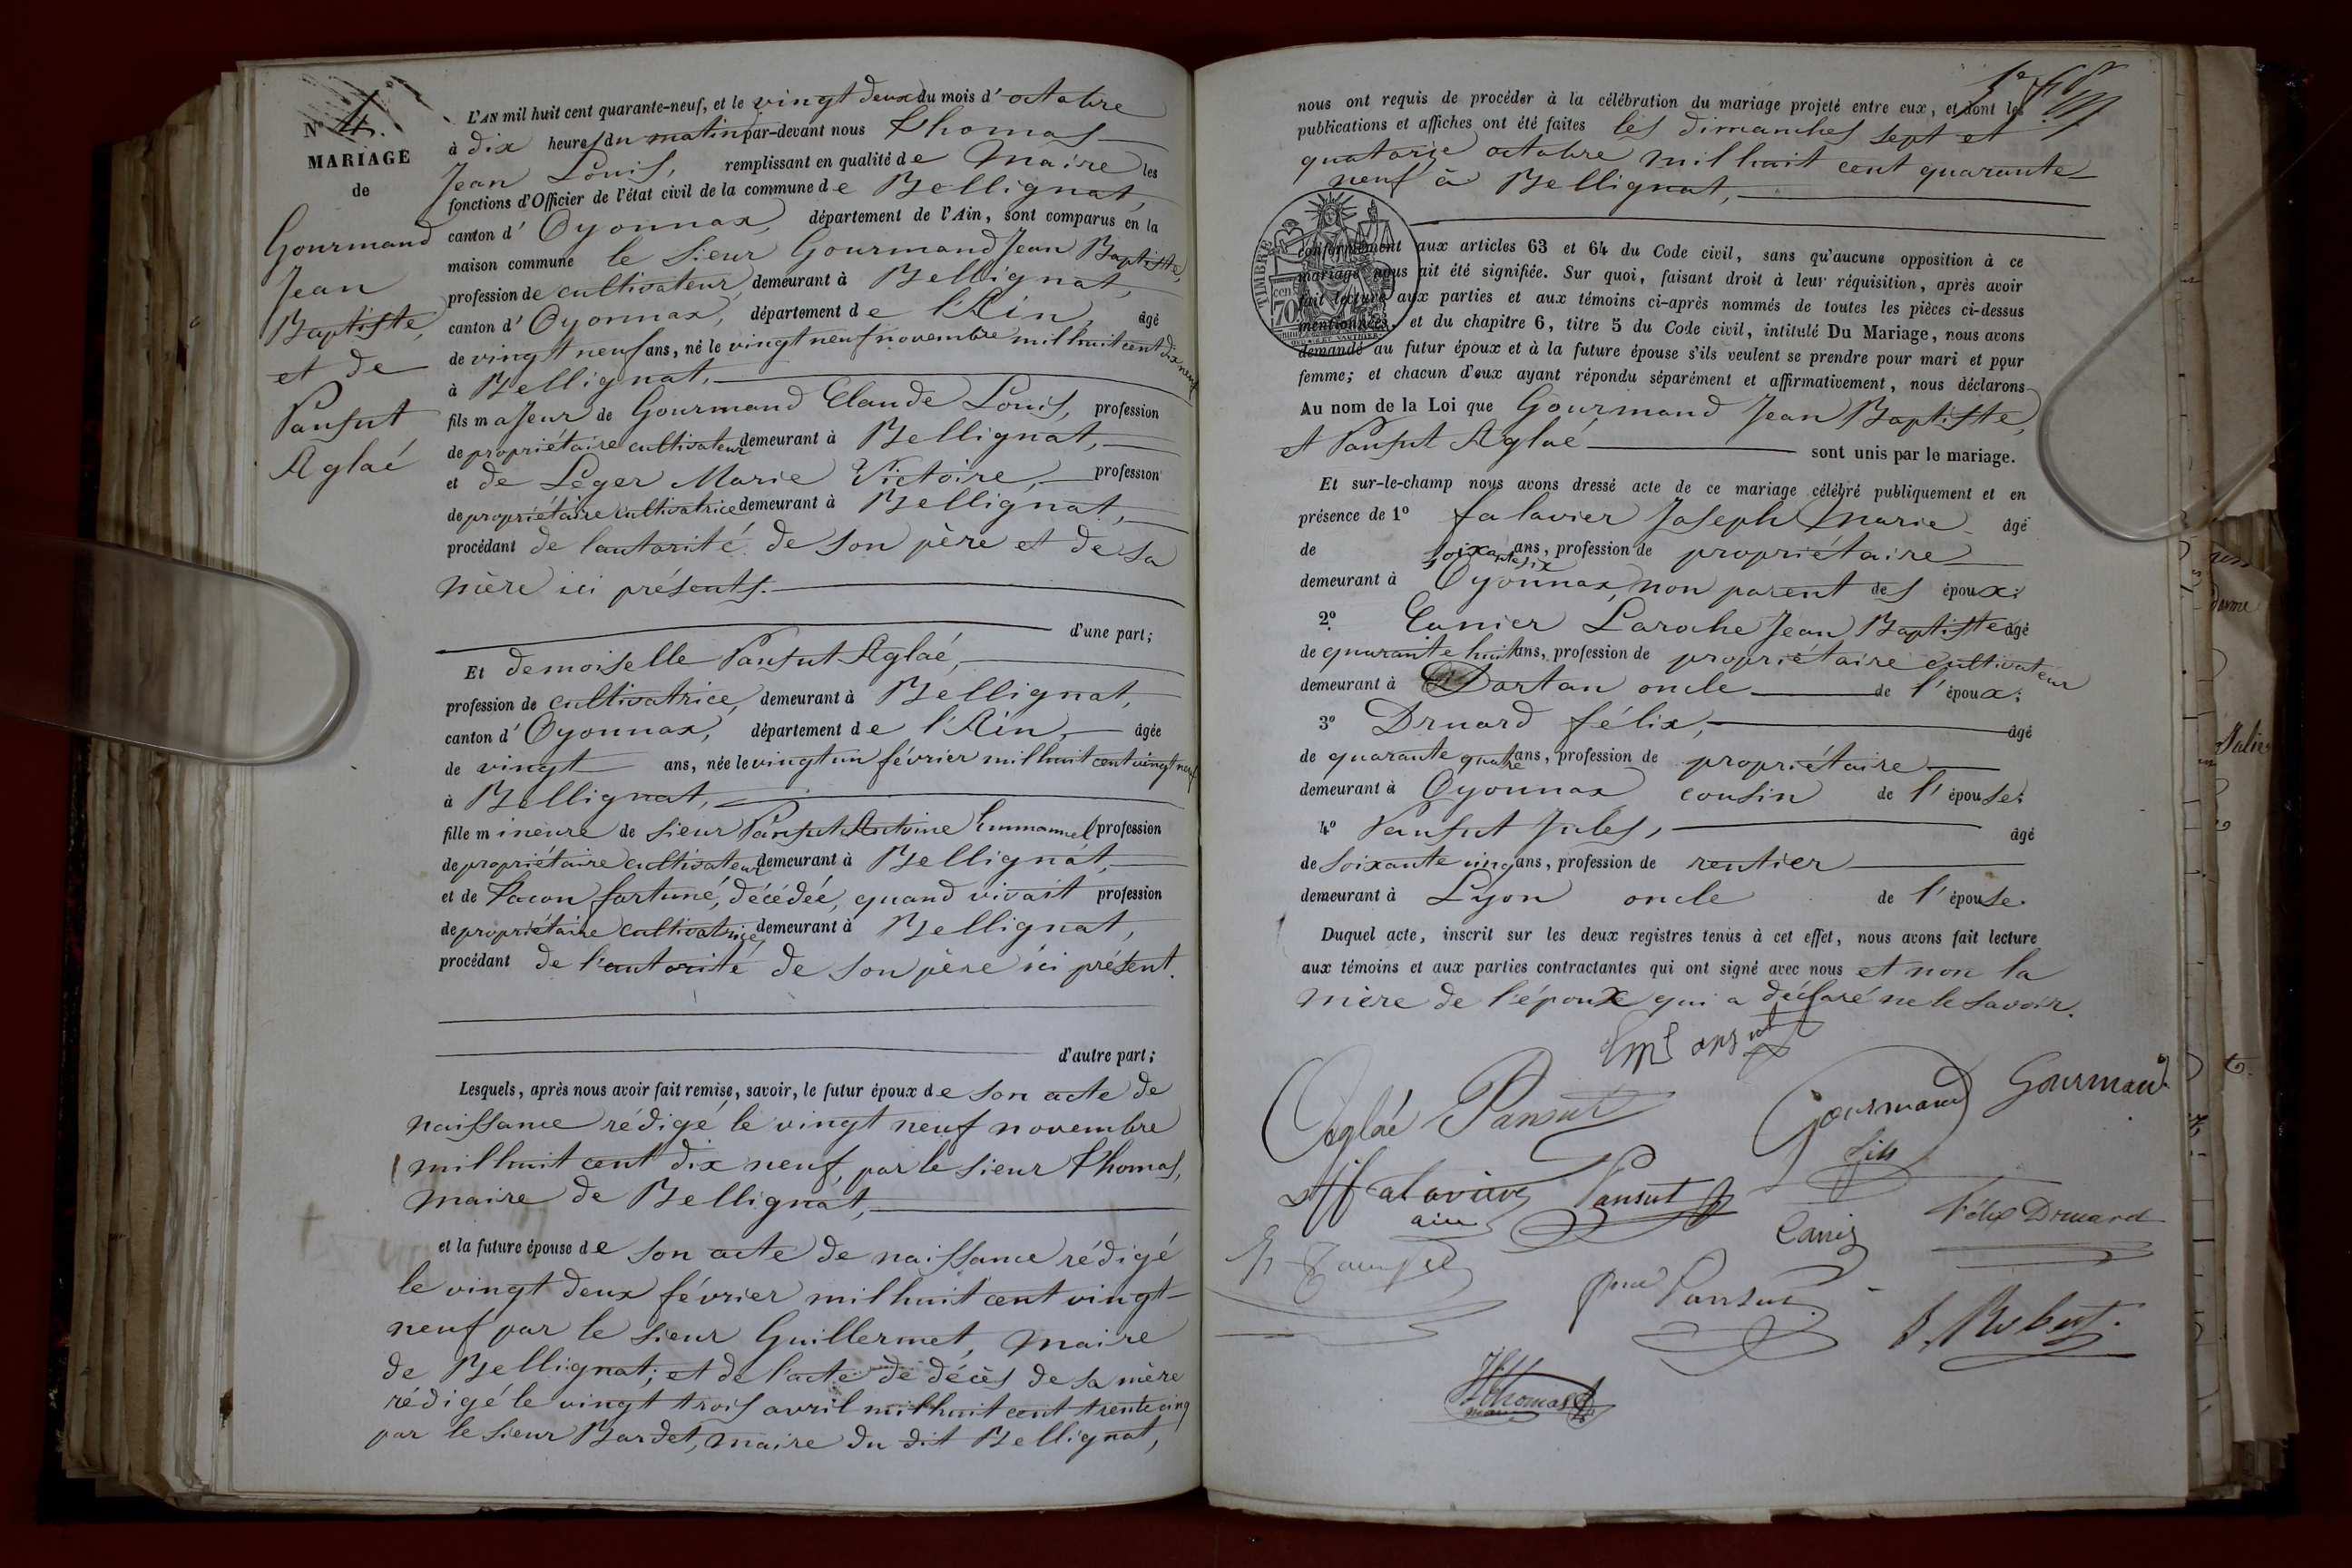 N° 4.
MARIAGE
de
Gourmand
Jean
Baptiste,
et de
Pansut
Aglaé
L'AN mil huit cent quarante-neuf, et le vingt deux du mois d'octobre
à dix heures du matin par-devant nous Thomas
Jean Louis, remplissant en qualité de Maire les
fonctions d'Officier de l'état civil de la commune de Bellignat,
canton d'Oyonnax, département de l'Ain, sont comparus en la
maison commune le sieur Gourmand Jean Baptiste,
profession de cultivateur, demeurant à Bellignat,
canton d'Oyonnax, département de l'Ain, âgé
de vingt neuf ans, né le vingt neuf novembre mil huit cent dix neuf
à Bellignat,
fils majeur de Gourmand Claude Louis, profession
de propriétaire cultivateur demeurant à Bellignat,
et de Léger Marie Victoire, profession
de propriétaire cultivatrice demeurant à Bellignat,
procédant de l'autorité de son père et de sa
mère ici présents.
d'une part;
Et demoiselle Pansut Aglaé,
profession de cultivatrice, demeurant à Bellignat,
canton d'Oyonnax, département de l'Ain, âgée
de vingt ans, née le vingt un février mil huit cent vingt neuf
à Bellignat,
fille mineure de sieur Pansut Antoine Emmanuel profession
de propriétaire cultivateur demeurant à Bellignat,
et de Tacon fortuné, décédée, quand vivait profession
de propriétaire cultivatrice, demeurant à Bellignat,
procédant de l'autorité de son père ici présent.
d'autre part;
Lesquels, après nous avoir fait remise, savoir, le futur époux de son acte de
naissance rédigé le vingt neuf novembre
mil huit cent dix neuf, par le sieur Thomas,
maire de Bellignat,
et la future épouse de son acte de naissance rédigé
le vingt deux février mil huit cent vingt
neuf par le sieur Guillermet, maire
de Bellignat; et de l'acte de décès de sa mère
rédigé le vingt trois avril mil huit cent trente cinq
par le sieur Bardet, maire du dit Bellignat,
nous ont requis de procéder à la célébration du mariage projeté entre eux, et dont les
publications et affiches ont été faites les dimanches sept et
quatorze octobre mil huit cent quarante
neuf à Bellignat,
TIMBRE
70
conformément aux articles 63 et 64 du Code civil, sans qu'aucune opposition à ce
mariage nous ait été signifiée. Sur quoi, faisant droit à leur réquisition, après avoir
fait lecture aux parties et aux témoins ci-après nommés de toutes les pièces ci-dessus
mentionnées, et du chapitre 6, titre 5 du Code civil, intitulé Du Mariage, nous avons
demandé au futur époux et à la future épouse s'ils veulent se prendre pour mari et pour
femme; et chacun d'eux ayant répondu séparément et affirmativement, nous déclarons
Au nom de la Loi que Gourmand Jean Baptiste,
et Pansut Aglaé sont unis par le mariage.
Et sur-le-champ nous avons dressé acte de ce mariage célébré publiquement et en
présence de 1° falavier Joseph Marie âgé
de soixante six ans, profession de propriétaire
demeurant à Oyonnax, non parent des époux;
2° Canier Laroche Jean Baptiste âgé
de quarante huit ans, profession de propriétaire cultivateur
demeurant à Dortan oncle de l'époux;
3° Druard félix, âgé
de quarante quatre ans, profession de propriétaire
demeurant à Oyonnax cousin de l'épouse;
4° Pansut Jules, âgé
de soixante cinq ans, profession de rentier
demeurant à Lyon oncle de l'épouse.
Duquel acte, inscrit sur les deux registres tenus à cet effet, nous avons fait lecture
aux témoins et aux parties contractantes qui ont signé avec nous et non la
mère de l'époux qui a déclaré ne le savoir.
Aglaé Pansut
Gourmand
fils
Gourmand
falavier
Pansut
Canier
Félix Druard
Pansut
J. Robert.
Thomas